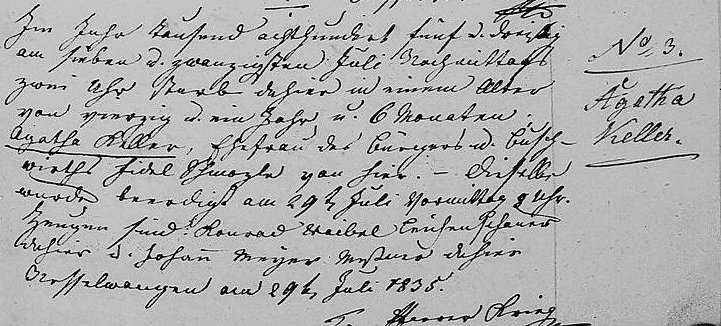 Im Jahr tausend achthundert fünf u. dreißig
am sieben u. zwanzigsten Juli Nachmittags
zwei Uhr starb dahier in einem Alter
von vierzig u. ein Jahr u. 6 Monaten,
Agatha Keller, Ehefrau des Bürgers u.
wirths Fidel Schmozle von hier. – Dieselbe
wurde beerdigt am 29t Juli Vormittag 9 Uhr.
Zeugen sind: Konrad Leichenschauer
dahier u. Johann Meyer Meßner dahier
Nesselwangen am 29t Juli 1835.
Pfarrer Krieg
No. 3.
Agatha
Keller.